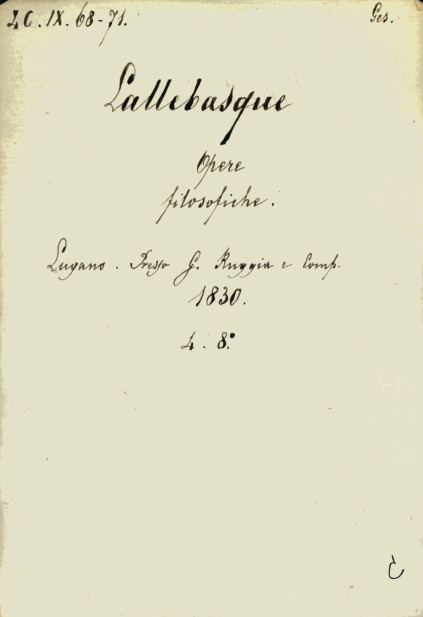 4 C. IX. 68-71. Ges.
Lallebasque
Opere
filosofiche.
Lugano. Presso G. Ruggia e Comp.
1830.
4. 8º.